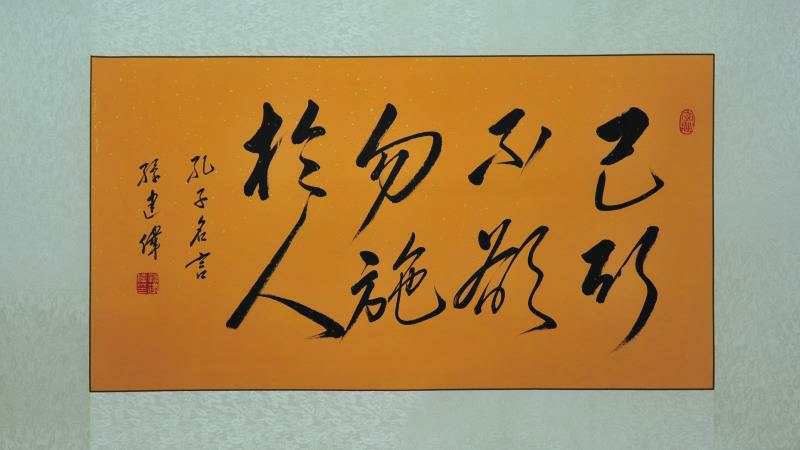 己所
不欲
勿施
於人
孔子名言
孫建偉